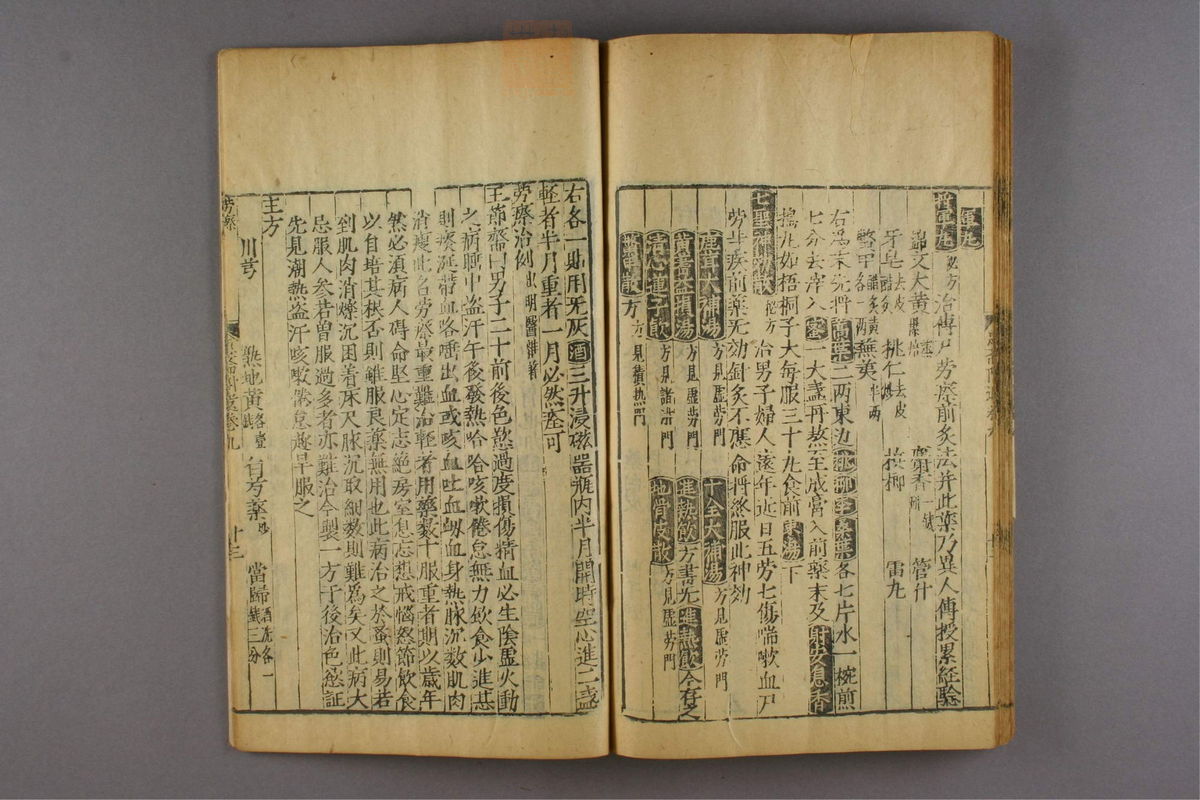 治傳尸勞瘵前灸法并此藥乃異人傳授累經驗
錦文大黃
牙皂 去皮 醋炙 桃仁 去皮 雷丸
鱉甲 醋炙黃 各一兩 蕪荑 半兩
右為末先將蒿葉二兩東邊桃柳李桑葉各七片水一椀煎
七分去滓入蜜一大盞再熬至成膏入前藥末及麝安息香
搗丸如梧桐子大每服三十丸食前棗湯下
治男子婦人遠年近日五勞七傷喘嗽血尸
勞瘵疾前藥无効針灸不應命將終服此神効
鹿茸大補湯 方見虛勞門 十全大補湯 方見虛勞門
黃耆益損湯 方見虛勞門 進熱飲
清心蓮子飲 方見諸淋門 地骨皮散 方見虛勞門
鱉甲散 方 方見積熱門
右各一貼用无灰酒三升浸磁器瓶內半月開時空心進二盞
輕者半月重者一月必然痊可
勞瘵治例 出明醫雜著
王節齋曰男子二十前後色慾過度損傷精血必生陰虛火動
之病睡中盜汗午後發熱哈哈咳嗽倦怠無力飲食少進甚
則痰涎帶血咯唾出血或咳血吐血衂血身熱脉沉數肌肉
消瘦此名勞瘵最重難治輕者用藥數十服重者期以歲年
然必須病人惜命堅心定志絕房室息妄想戒惱怒節飲食
以自培其根否則雖服良藥無用也此病治之於蚤則易若
到肌肉消爍沉困着床尺脉沉取細數則難為矣又此病大
忌服人參若曾服過多者亦難治今製一方于後治色慾証
先見潮熱盜汗咳嗽倦怠趁早服之
主方
川芎 熟地黃 各壹錢 白芍藥 炒 當歸 酒洗各一錢三分
勞瘵 十三